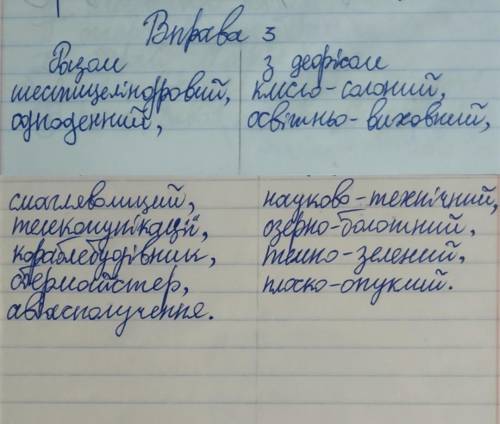 Вправа 3
Разом
з дефісом
шестициліндровий, кисло-солоний,
одноденний, освітньо-виховний,
смагляволиций, науково-технічний,
телекомунікації, озерно-болотний,
кораблебудівник, темно-зелений,
обермайстер, плоско-опуклий.
авіасполучення.